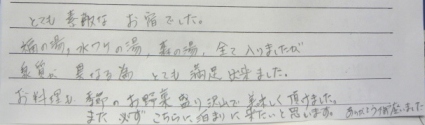 とても 素敵な お宿でした。
の湯、水つけの湯、森の湯、全て入りましたが
泉質が 異なる為 とても 満足 出来ました。
お料理も 季節の お野菜 盛り沢山で 美味しく 頂けました。
また 必ず こちらに 泊まりに 来たいと思います。 ありがとう御座いました